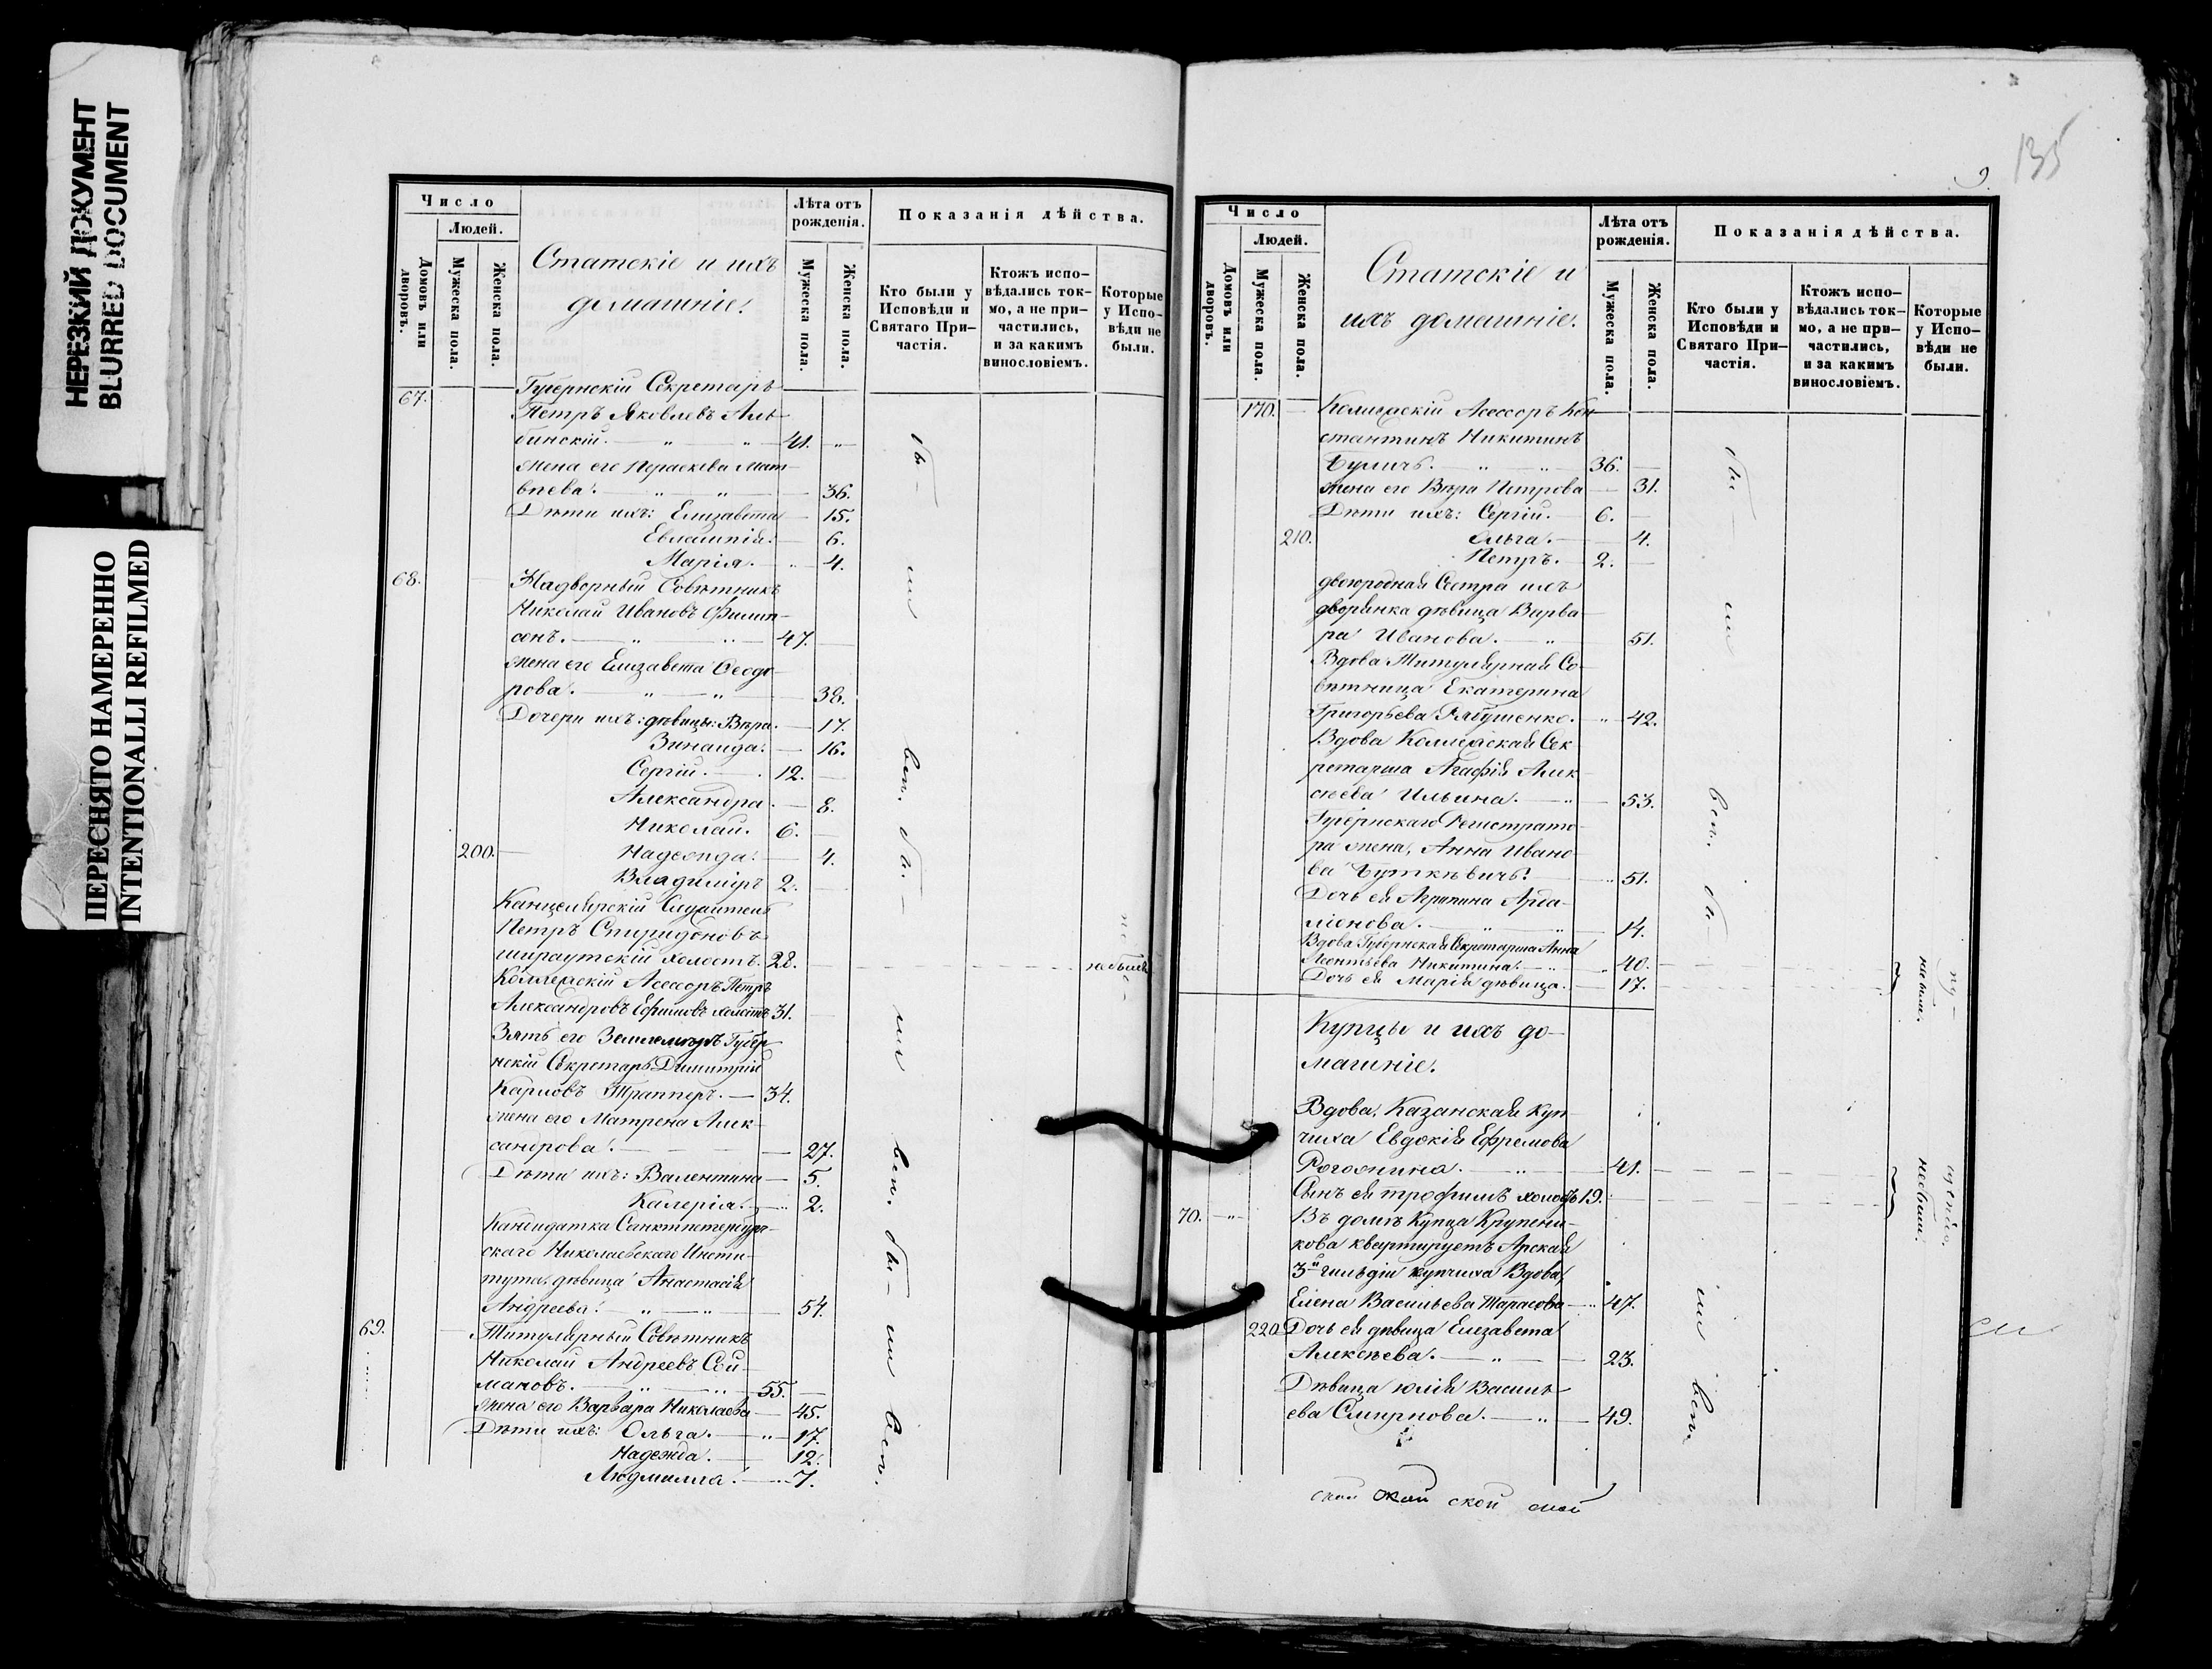 НЕРЕЗКИЙ ДОКУМЕНТ
BLURRED DOCUMENT
ПЕРЕСНЯТО НАМЕРЕННО
INTENTIONALLI REFILMED
Число
Людей.
Домовъ или дворовъ.
Мужеска пола.
Женска пола.
Статскіе и ихъ
домашніе.
Лѣта отъ рожденія.
Мужеска пола.
Женска пола.
Показанія дѣйства.
Кто были у Исповѣди и Святаго При-
частія.
Ктожъ испо-
вѣдались ток-
мо, а не при-
частились,
и за какимъ
винословіемъ.
Которые
у Испо-
вѣди не
были.
Губернскій Секретарь
67. Петръ Яковлевъ Аль-
бинскій. 41.
жена его Параскева Мат-
вѣева. 36.
Дѣти ихъ: Елизавета 15.
Евлампія. 6.
Марія. 4.
68. Надворный Совѣтникъ
Николай Ивановъ Филип-
сонъ. 47.
жена его Елизавета Ѳеодо-
рова. 38.
Дочери ихъ: дѣвицы: Вѣра. 17.
Зинаида. 16.
Сергій. 12.
Александра. 8.
Николай. 6.
200. Надежда. 4.
Владиміръ 2.
Канцелярскій Служитель
Петръ Спиридоновъ
холостъ. 28. небылъ
Коллежскій Асессоръ Петръ
Александровъ Ефимовъ холостъ 31.
Зять его Землемѣръ Губер-
нскій Секретарь Димитрій
Карловъ Траппер. 34.
жена его Матрена Алек-
сандрова. 27.
Дѣти ихъ: Валентина 5.
Калерія. 2.
Кандидатка Санктпетербург-
скаго Николаевскаго Инсти-
тута, дѣвица Анастасія
Андреева. 54.
69. Титулярный Совѣтникъ
Николай Андреевъ Сой-
мановъ. 55.
жена его Варвара Николаева 45.
Дѣти ихъ: Ольга. 17.
Надежда. 12.
Людмилла. 7.
135
9.
Число
Людей.
Домовъ или дворовъ.
Мужеска пола.
Женска пола.
Статскіе и
ихъ домашніе.
Лѣта отъ рожденія.
Мужеска пола.
Женска пола.
Показанія дѣйства.
Кто были у
Исповѣди и
Святаго При-
частія.
Ктожъ испо-
вѣдались ток-
мо, а не при-
частились,
и за какимъ
винословіемъ.
Которые
у Испо-
вѣди не
были.
170. Колежскій Асессоръ Кон-
стантинъ Никитинъ
Буличъ. 36.
жена его Вѣра Петрова 31.
Дѣти ихъ: Сергій. 6.
210. Ольга. 4.
Петръ. 2.
двоюродная Сестра ихъ
дворянка дѣвица Варва-
ра Иванова. 51.
Вдова Титулярная Со-
вѣтница Екатерина
Григорьева Рябушенко. 42.
Вдова Коллежская Сек-
ретарша Агафія Алек-
сѣева Ильина. 53.
Губернскаго Регистрато-
ра жена, Анна Ивано-
ва Буткѣвичь. 51.
Дочь ея Агрипина Арда-
ліонова. 14.
Вдова Губернская Секретарша Анна
Леонтьева Никитина. 40.
Дочь ея Марія дѣвица. 17. небыли.
Купцы и ихъ до-
машніе.
Вдова, Казанская Куп-
чиха Евдокія Ефремова
Рогожина. 41.
Сынъ ея Трофимъ холостъ 19. небыли.
70. Въ домѣ Купца Крупени-
кова квартируетъ Арская
3й гильдіи купчиха Вдова,
Елена Васильева Тарасова 47.
220. Дочь ея дѣвица Елизавета
Алексѣева. 23.
Дѣвица Юлія Василь-
ева Смирнова. 49.
ской ской ской ской